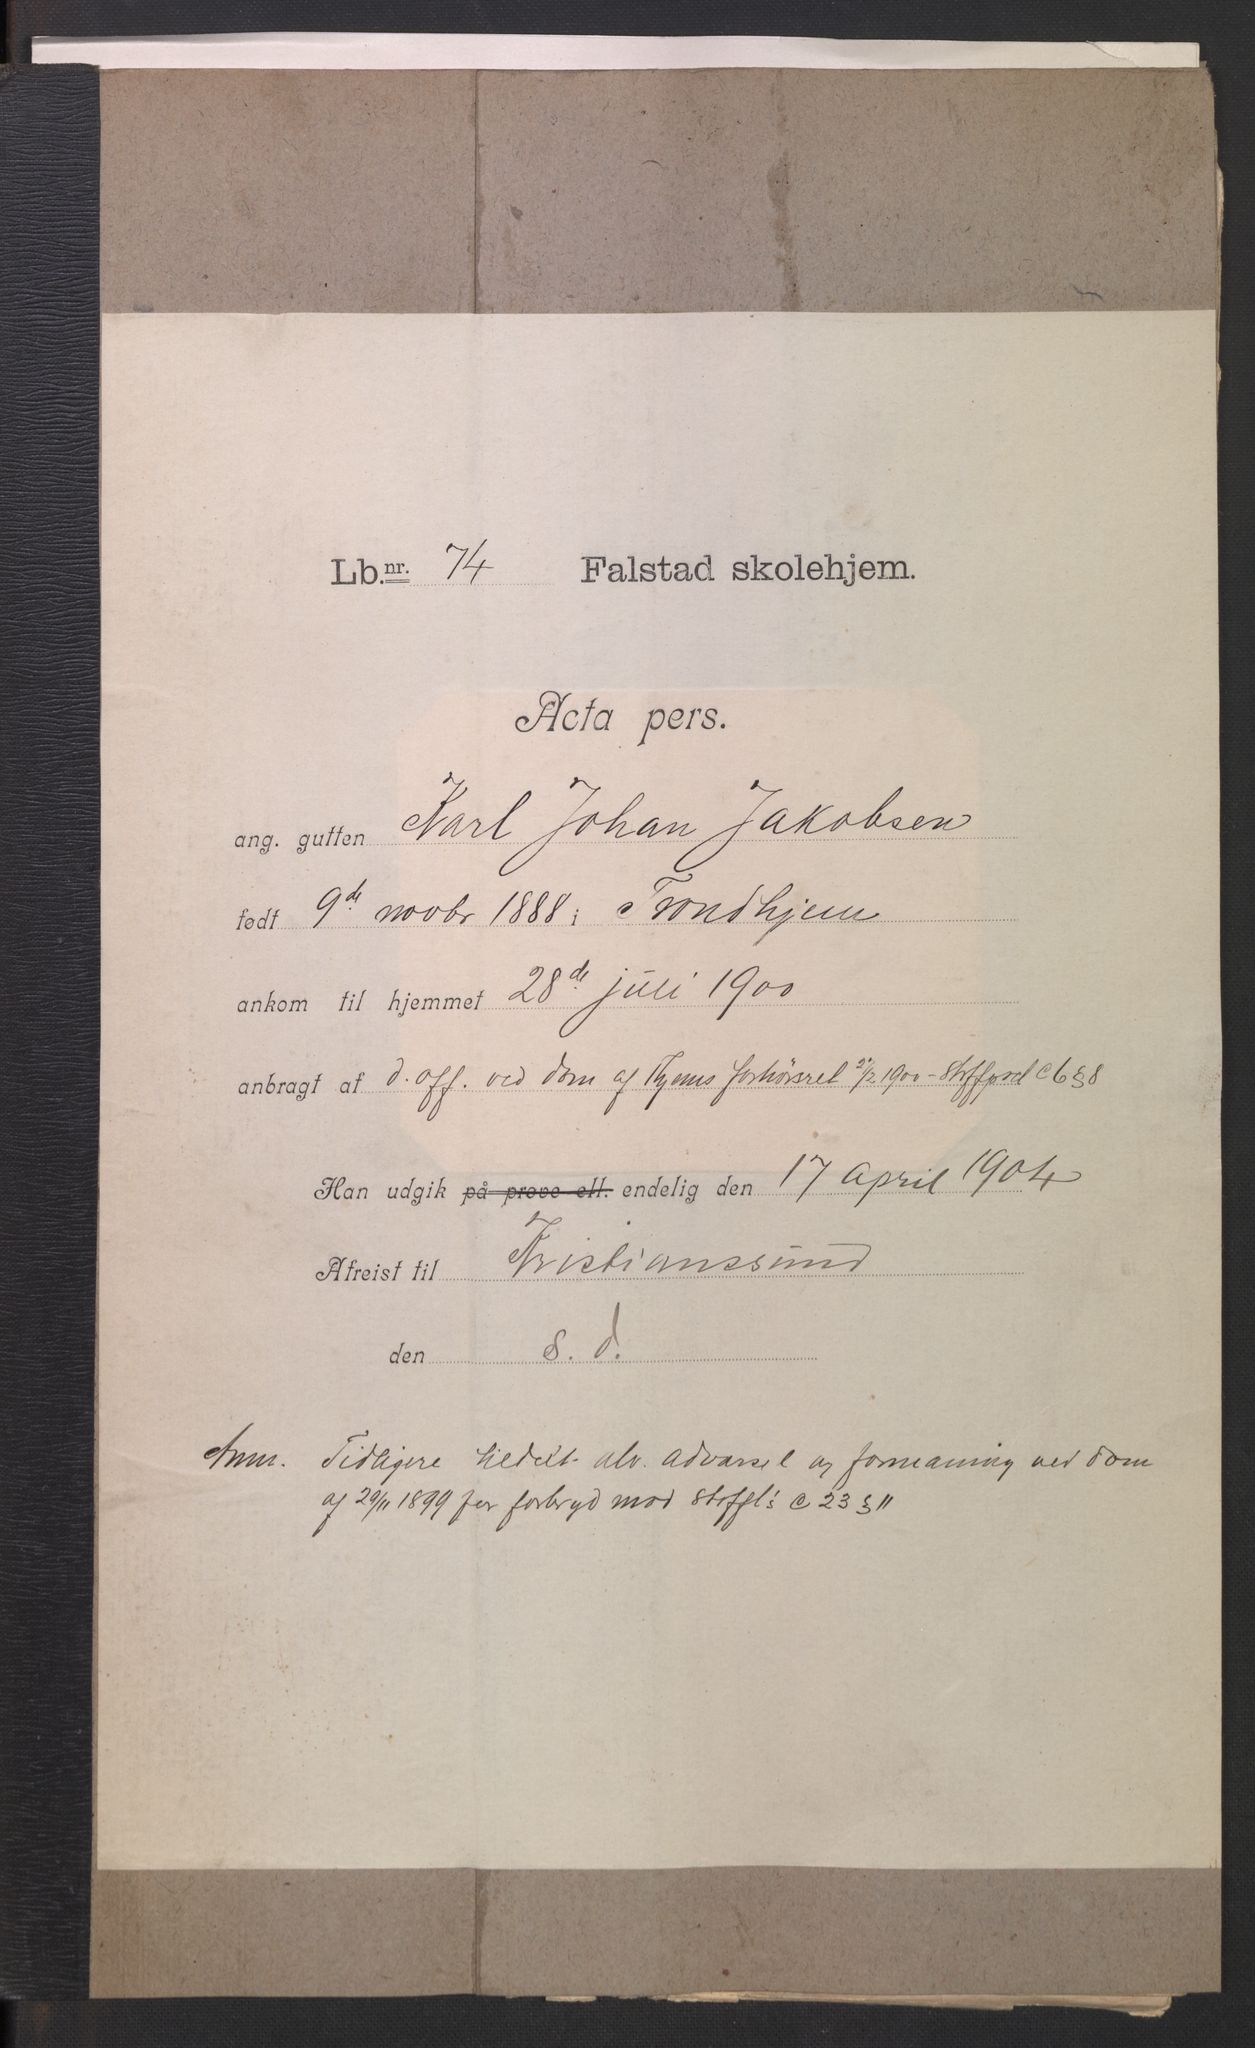 Lb.nr. 74 Falstad skolehjem.
Acta pers.
ang. gutten Karl Johan Jakobsen
født 9de novbr 1888 i Trondhjem
ankom til hjemmet 28de juli 1900
anbragt af d. off. ved dom af Thjems forhörsret 1900 - Straffprocl C 6 § 8
Han udgik på prove ell. endelig den 17 april 1904
Afreist til Kristianssund
den s. d.
Anm. Tidligere tildelt alv. advarsel og formaning ved dom
af 29/11 1899 for forbryd mod Straffl's C 23 § 11